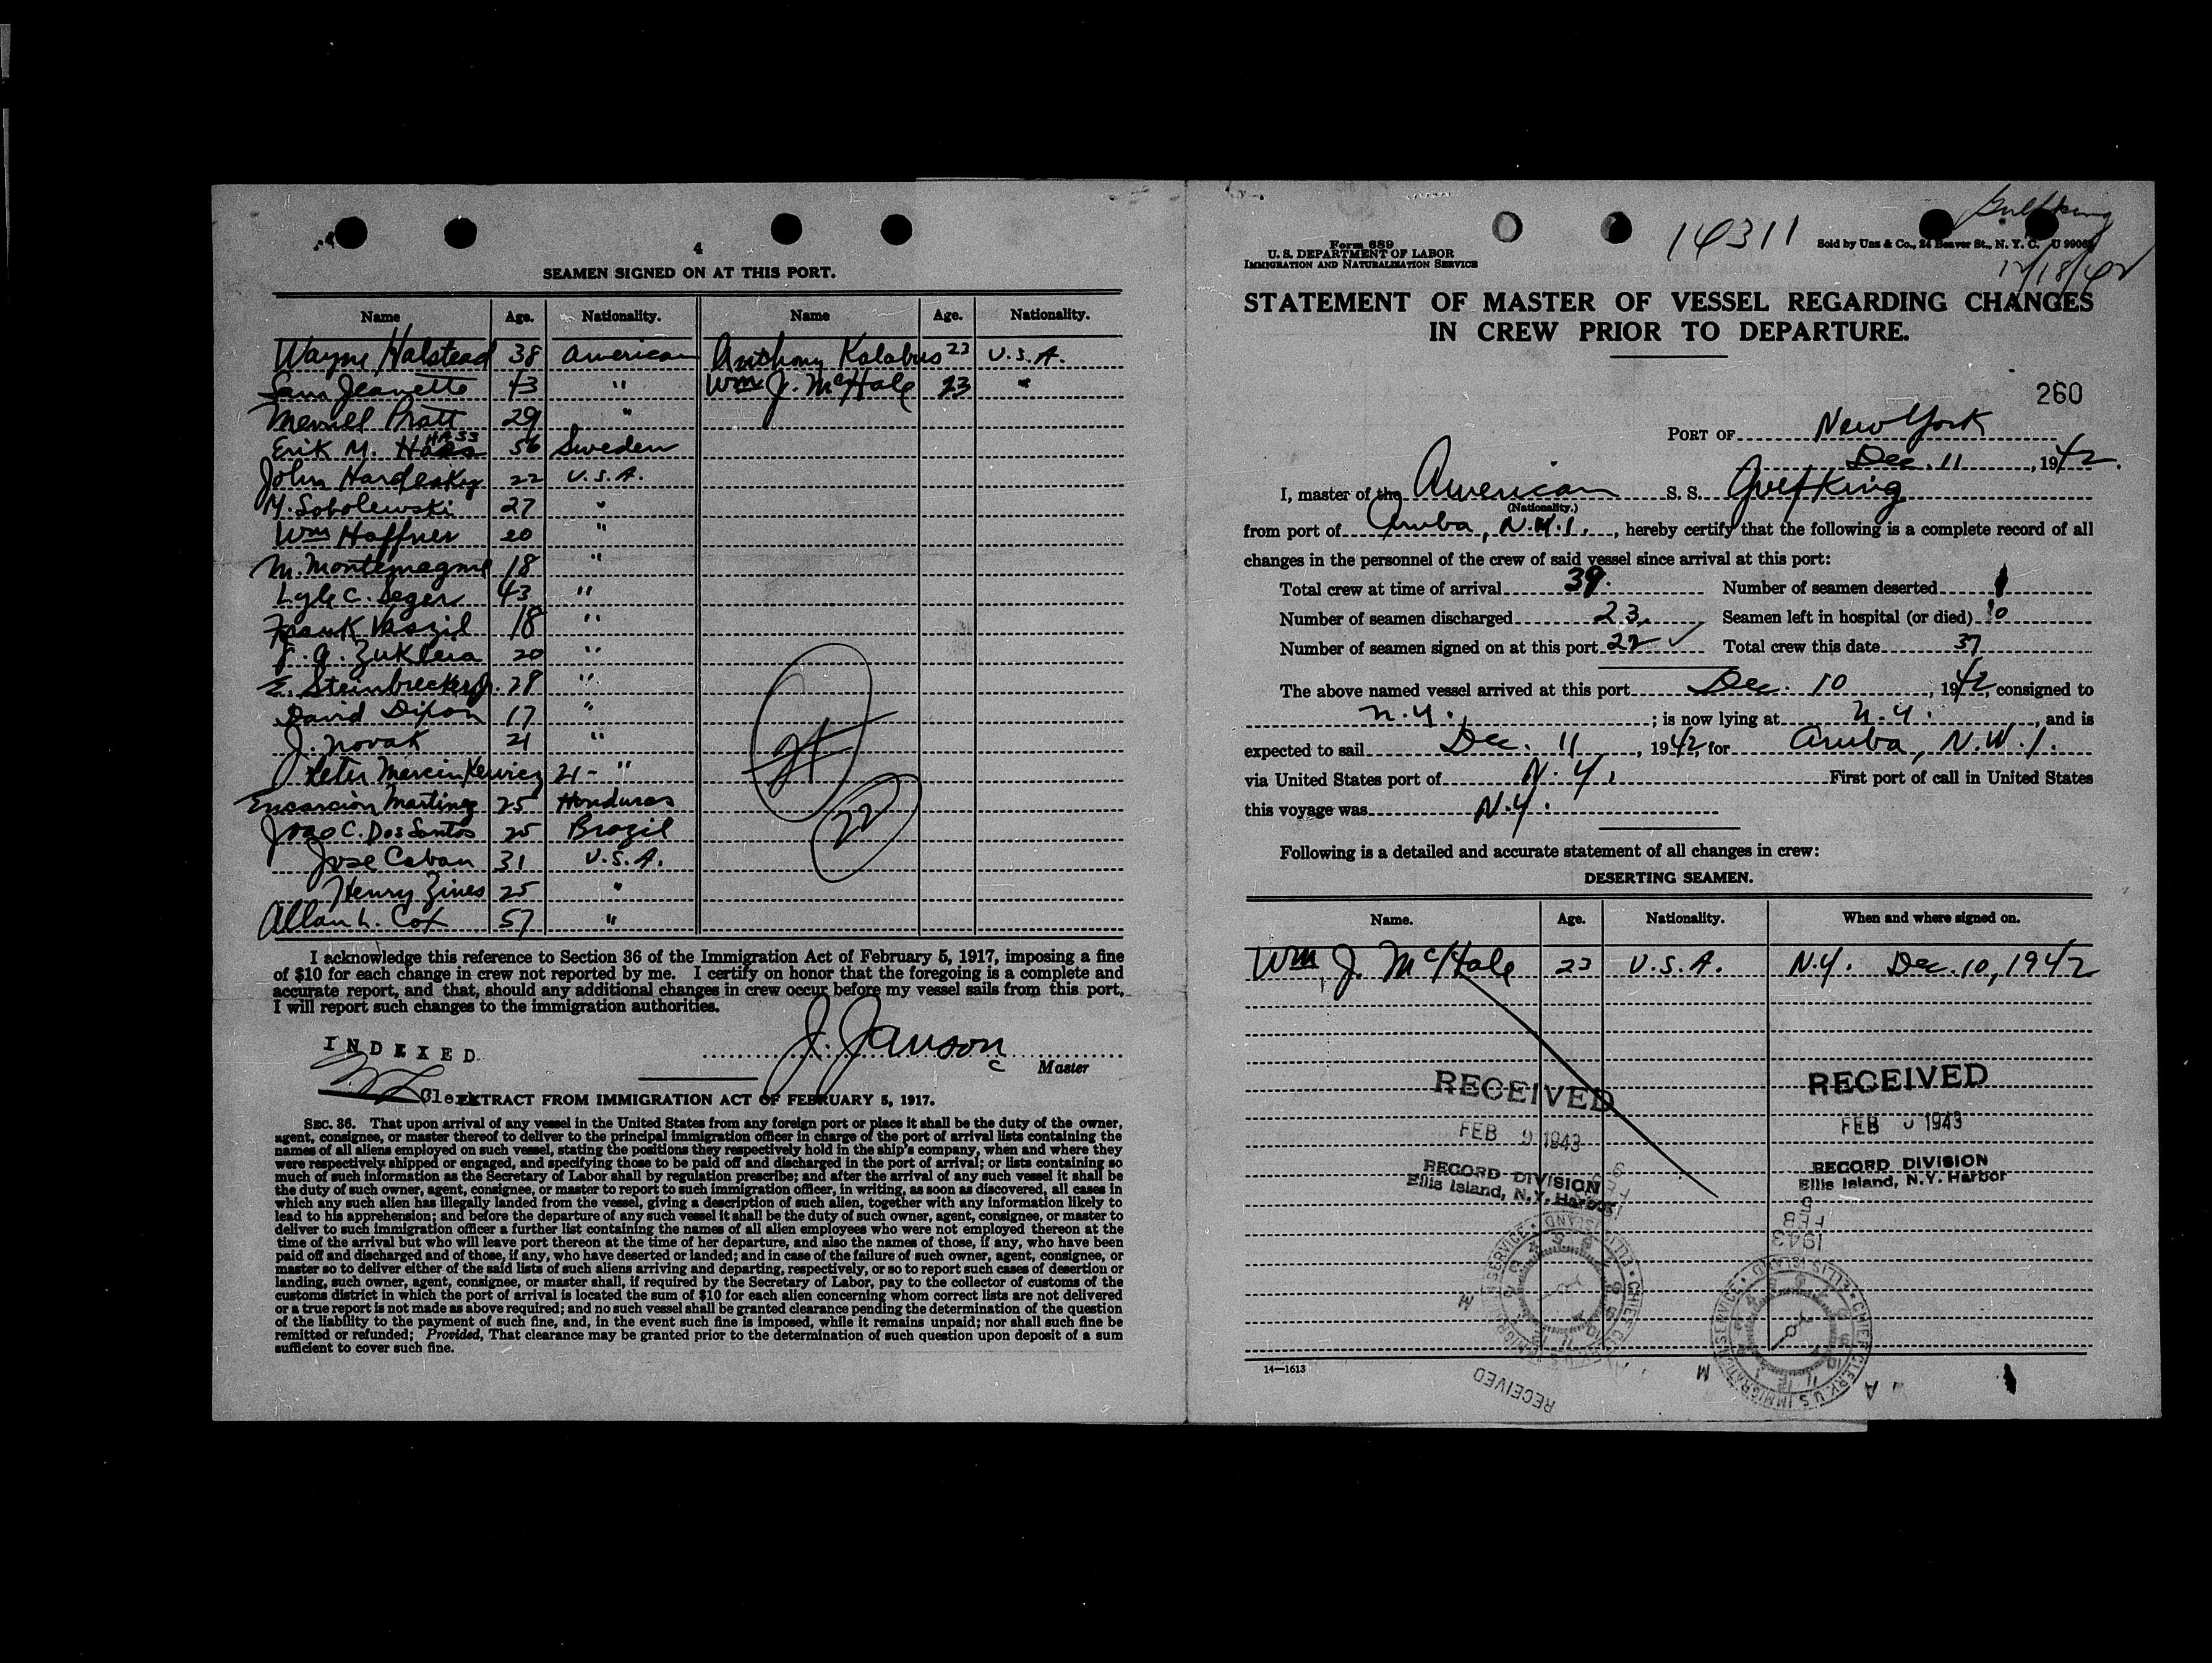 4
SEAMEN SIGNED ON AT THIS PORT.
Name Age. Nationality. Name Age. Nationality.
Wayne Halstead 38 American Anthony Kalabus 23 U.S.A.
Sam Jeanette 43 " Wm J. McHale 23 "
Merrill Pratt 29 "
HASS
Erik M. Hass 56 Sweden
John Hardesky 22 U.S.A.
M. Sobolewski 27 "
Wm Haffner 20 "
M. Montemagni 18 "
Lyle C. Seger 43 "
Frank Vaszil 18 "
20 "
E. Steinbrecker Jr. 28 "
David Dixon 17 "
J. Novak 21 "
Peter Marcinkewicz 21 - "
Encarcion Martinez 25 Honduras
Joao C. Dos Santos 25 Brazil
Jose Caban 31 U.S.A.
Henry Zines 25 "
Allan L. Cox 57 "
21
22
I acknowledge this reference to Section 36 of the Immigration Act of February 5, 1917, imposing a fine
of $10 for each change in crew not reported by me. I certify on honor that the foregoing is a complete and
accurate report, and that, should any additional changes in crew occur before my vessel sails from this port,
I will report such changes to the immigration authorities.
INDEXED
J. Janson
Master
Clerk
EXTRACT FROM IMMIGRATION ACT OF FEBRUARY 5, 1917.
SEC. 36. That upon arrival of any vessel in the United States from any foreign port or place it shall be the duty of the owner,
agent, consignee, or master thereof to deliver to the principal immigration officer in charge of the port of arrival lists containing the
names of all aliens employed on such vessel, stating the positions they respectively hold in the ship's company, when and where they
were respectively shipped or engaged, and specifying those to be paid off and discharged in the port of arrival; or lists containing so
much of such information as the Secretary of Labor shall by regulation prescribe; and after the arrival of any such vessel it shall be
the duty of such owner, agent, consignee, or master to report to such immigration officer, in writing, as soon as discovered, all cases in
which any such alien has illegally landed from the vessel, giving a description of such alien, together with any information likely to
lead to his apprehension; and before the departure of any such vessel it shall be the duty of such owner, agent, consignee, or master to
deliver to such immigration officer a further list containing the names of all alien employees who were not employed thereon at the
time of the arrival but who will leave port thereon at the time of her departure, and also the names of those, if any, who have been
paid off and discharged and of those, if any, who have deserted or landed; and in case of the failure of such owner, agent, consignee, or
master so to deliver either of the said lists of such aliens arriving and departing, respectively, or so to report such cases of desertion or
landing, such owner, agent, consignee, or master shall, if required by the Secretary of Labor, pay to the collector of customs of the
customs district in which the port of arrival is located the sum of $10 for each alien concerning whom correct lists are not delivered
or a true report is not made as above required; and no such vessel shall be granted clearance pending the determination of the question
of the liability to the payment of such fine, and, in the event such fine is imposed, while it remains unpaid; nor shall such fine be
remitted or refunded; Provided, That clearance may be granted prior to the determination of such question upon deposit of a sum
sufficient to cover such fine.
Gulfking
12/18/42
Form 689
U. S. DEPARTMENT OF LABOR
IMMIGRATION AND NATURALIZATION SERVICE
14311
Sold by Unz & Co., 24 Beaver St., N. Y. C.
STATEMENT OF MASTER OF VESSEL REGARDING CHANGES
IN CREW PRIOR TO DEPARTURE.
260
PORT OF New York
Dec. 11, 1942.
I, master of the American S. S. Gulfking
(Nationality.)
from port of Aruba, N.W.I., hereby certify that the following is a complete record of all
changes in the personnel of the crew of said vessel since arrival at this port:
Total crew at time of arrival 39. Number of seamen deserted 1
Number of seamen discharged 23. Seamen left in hospital (or died) 0
Number of seamen signed on at this port 22 ✓ Total crew this date 37
The above named vessel arrived at this port Dec. 10, 1942 consigned to
N.Y.; is now lying at N.Y., and is
expected to sail Dec. 11, 1942, for Aruba, N.W.I.
via United States port of N.Y. First port of call in United States
this voyage was N.Y.
Following is a detailed and accurate statement of all changes in crew:
DESERTING SEAMEN.
Name. Age. Nationality. When and where signed on.
Wm J. McHale 23 U.S.A. N.Y. Dec. 10, 1942
RECEIVED
FEB 9 1943
RECORD DIVISION
Ellis Island, N.Y. Harbor
RECEIVED
FEB 1943
RECORD DIVISION
Ellis Island, N.Y. Harbor
FEB
1943
CHIEF CLERK U.S. IMMIGRATION SERVICE • ELLIS ISLAND
CHIEF CLERK U.S. IMMIGRATION SERVICE • ELLIS ISLAND
RECEIVED
A M
14—1613